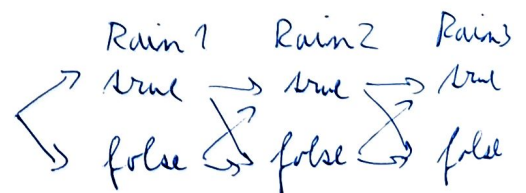 Rain 1 Rain 2 Rain 3
true true true
false false false